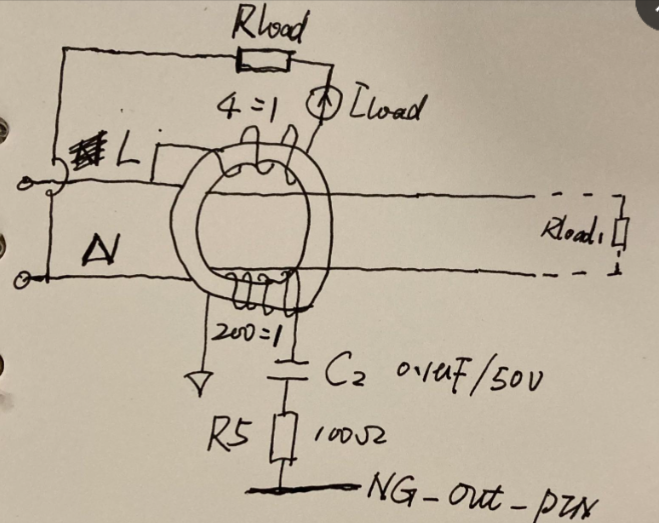 Rload
4=1
Iload
L
Rload1
N
200=1
C2 0.1uF/50V
R5 100Ω
NG-out-PIN